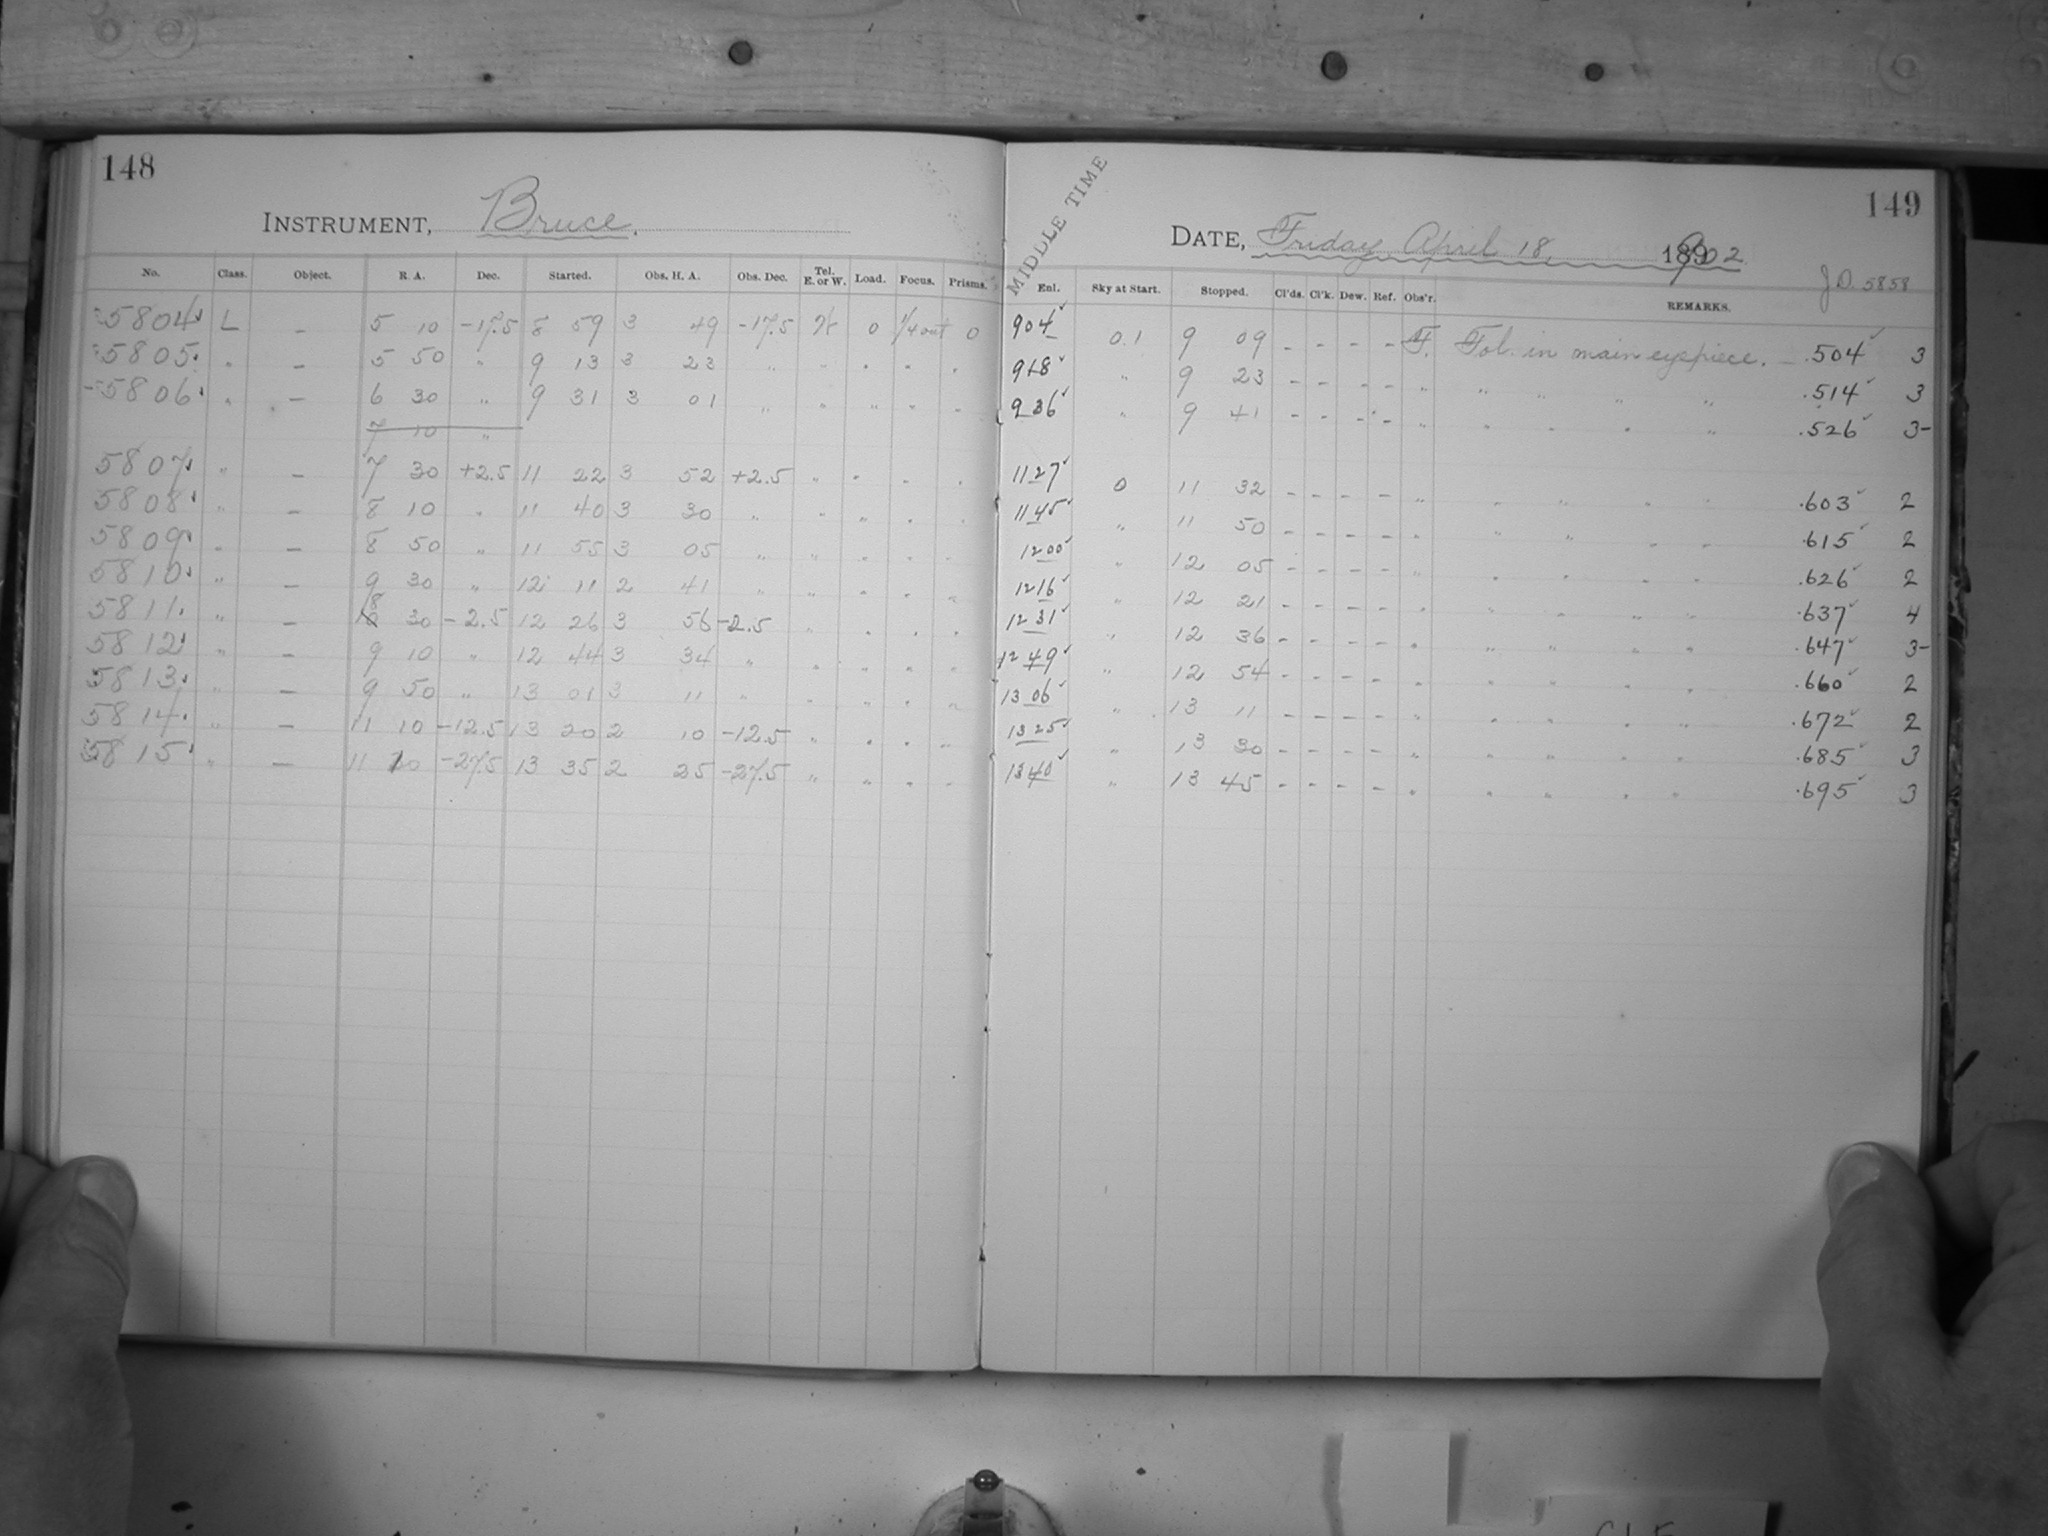 148
INSTRUMENT, Bruce.
No. Class. Object. R. A. Dec. Started. Obs. H. A. Obs. Dec. Tel. E. or W. Load. Focus. Prisms.
5804 L – 5 10 -17.5 8 59 3 49 -17.5 W 0 1/4 out 0
5805 " – 5 50 " 9 13 3 23 " " " " "
5806 " – 6 30 " 9 31 3 01 " " " " "
7 10 "
5807 " – 7 30 +2.5 11 22 3 52 +2.5 " " " "
5808 " – 8 10 " 11 40 3 30 " " " " "
5809 " – 8 50 " 11 55 3 05 " " " " "
5810 " – 9 30 " 12 11 2 41 " " " " "
5811 " – 8 30 -2.5 12 26 3 56 -2.5 " " " "
5812 " – 9 10 " 12 44 3 34 " " " " "
5813 " – 9 50 " 13 01 3 11 " " " " "
5814 " – 11 10 -12.5 13 20 2 10 -12.5 " " " "
5815 " – 11 10 -27.5 13 35 2 25 -27.5 " " " "
149
MIDDLE TIME
DATE, Friday April 18, 1902.
J D. 5858
Enl. Sky at Start. Stopped. Cl'ds. Cl'k. Dew. Ref. Obs'r. REMARKS.
9 04 0.1 9 09 – – – – F. Fol. in main eyepiece. – .504 3
9 18 " 9 23 – – – – " " " " " .514 3
9 36 " 9 41 – – – – " " " " " .526 3-
11 27 0 11 32 – – – – " " " " " .603 2
11 45 " 11 50 – – – – " " " " " .615 2
12 00 " 12 05 – – – – " " " " " .626 2
12 16 " 12 21 – – – – " " " " " .637 4
12 31 " 12 36 – – – – " " " " " .647 3-
12 49 " 12 54 – – – – " " " " " .660 2
13 06 " 13 11 – – – – " " " " " .672 2
13 25 " 13 30 – – – – " " " " " .685 3
13 40 " 13 45 – – – – " " " " " .695 3